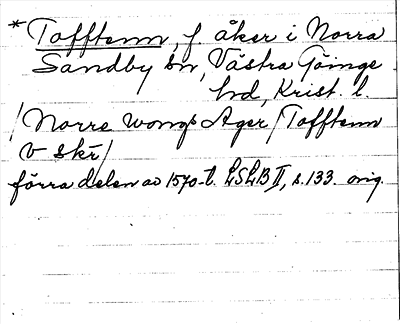 * Tofftenn, f. åker i Norra
Sandby sn, Västra Göinge
hd, Krist. l.
/Norre wongs Ager/Tofftenn
v skr/
förra delen av 1570-t. LSLB II, s. 133. orig.